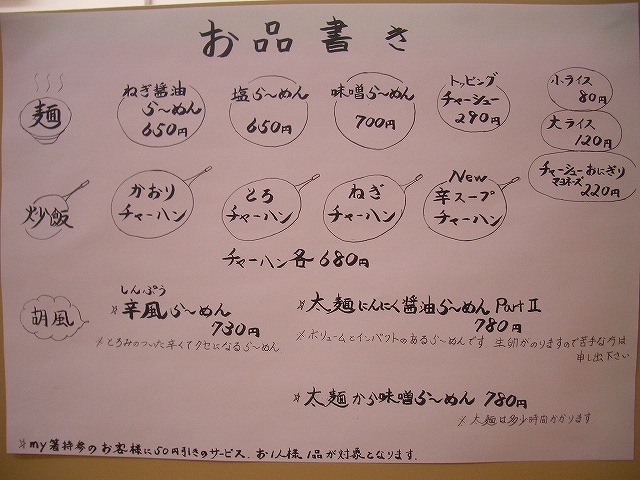 お品書き
麺
ねぎ醤油
らーめん
650円
塩らーめん
650円
味噌らーめん
700円
トッピング
チャーシュー
290円
小ライス
80円
大ライス
120円
チャーシューおにぎり
マヨネーズ
220円
炒飯
かおり
チャーハン
とろ
チャーハン
ねぎ
チャーハン
New
辛スープ
チャーハン
チャーハン各680円
胡風
しんぷう
※辛風らーめん
730円
※とろみのついた辛くてクセになるらーめん
※太麺にんにく醤油らーめん Part II
780円
※ボリュームとインパクトのあるらーめんです 生卵がのりますので苦手な方は
申し出下さい
※太麺から味噌らーめん 780円
※太麺は多少時間かかります
※my箸持参のお客様に50円引きのサービス、お1人様1品が対象となります.